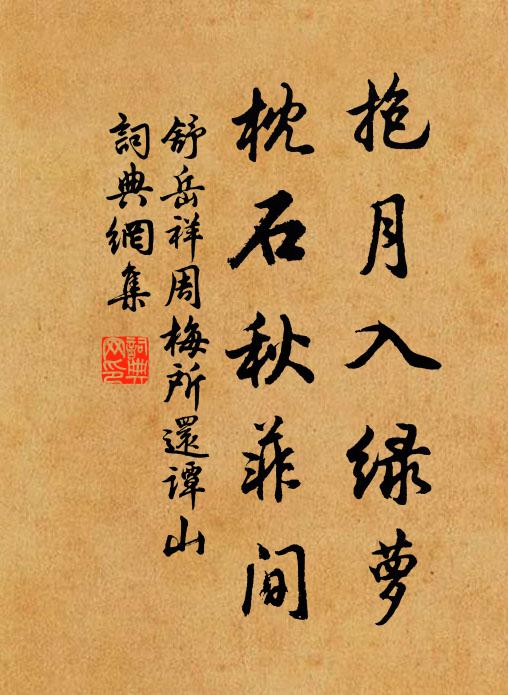 抱月入绿萝
枕石秋菲间
舒岳祥周梅所還谭山
詞典網集
詞典网印